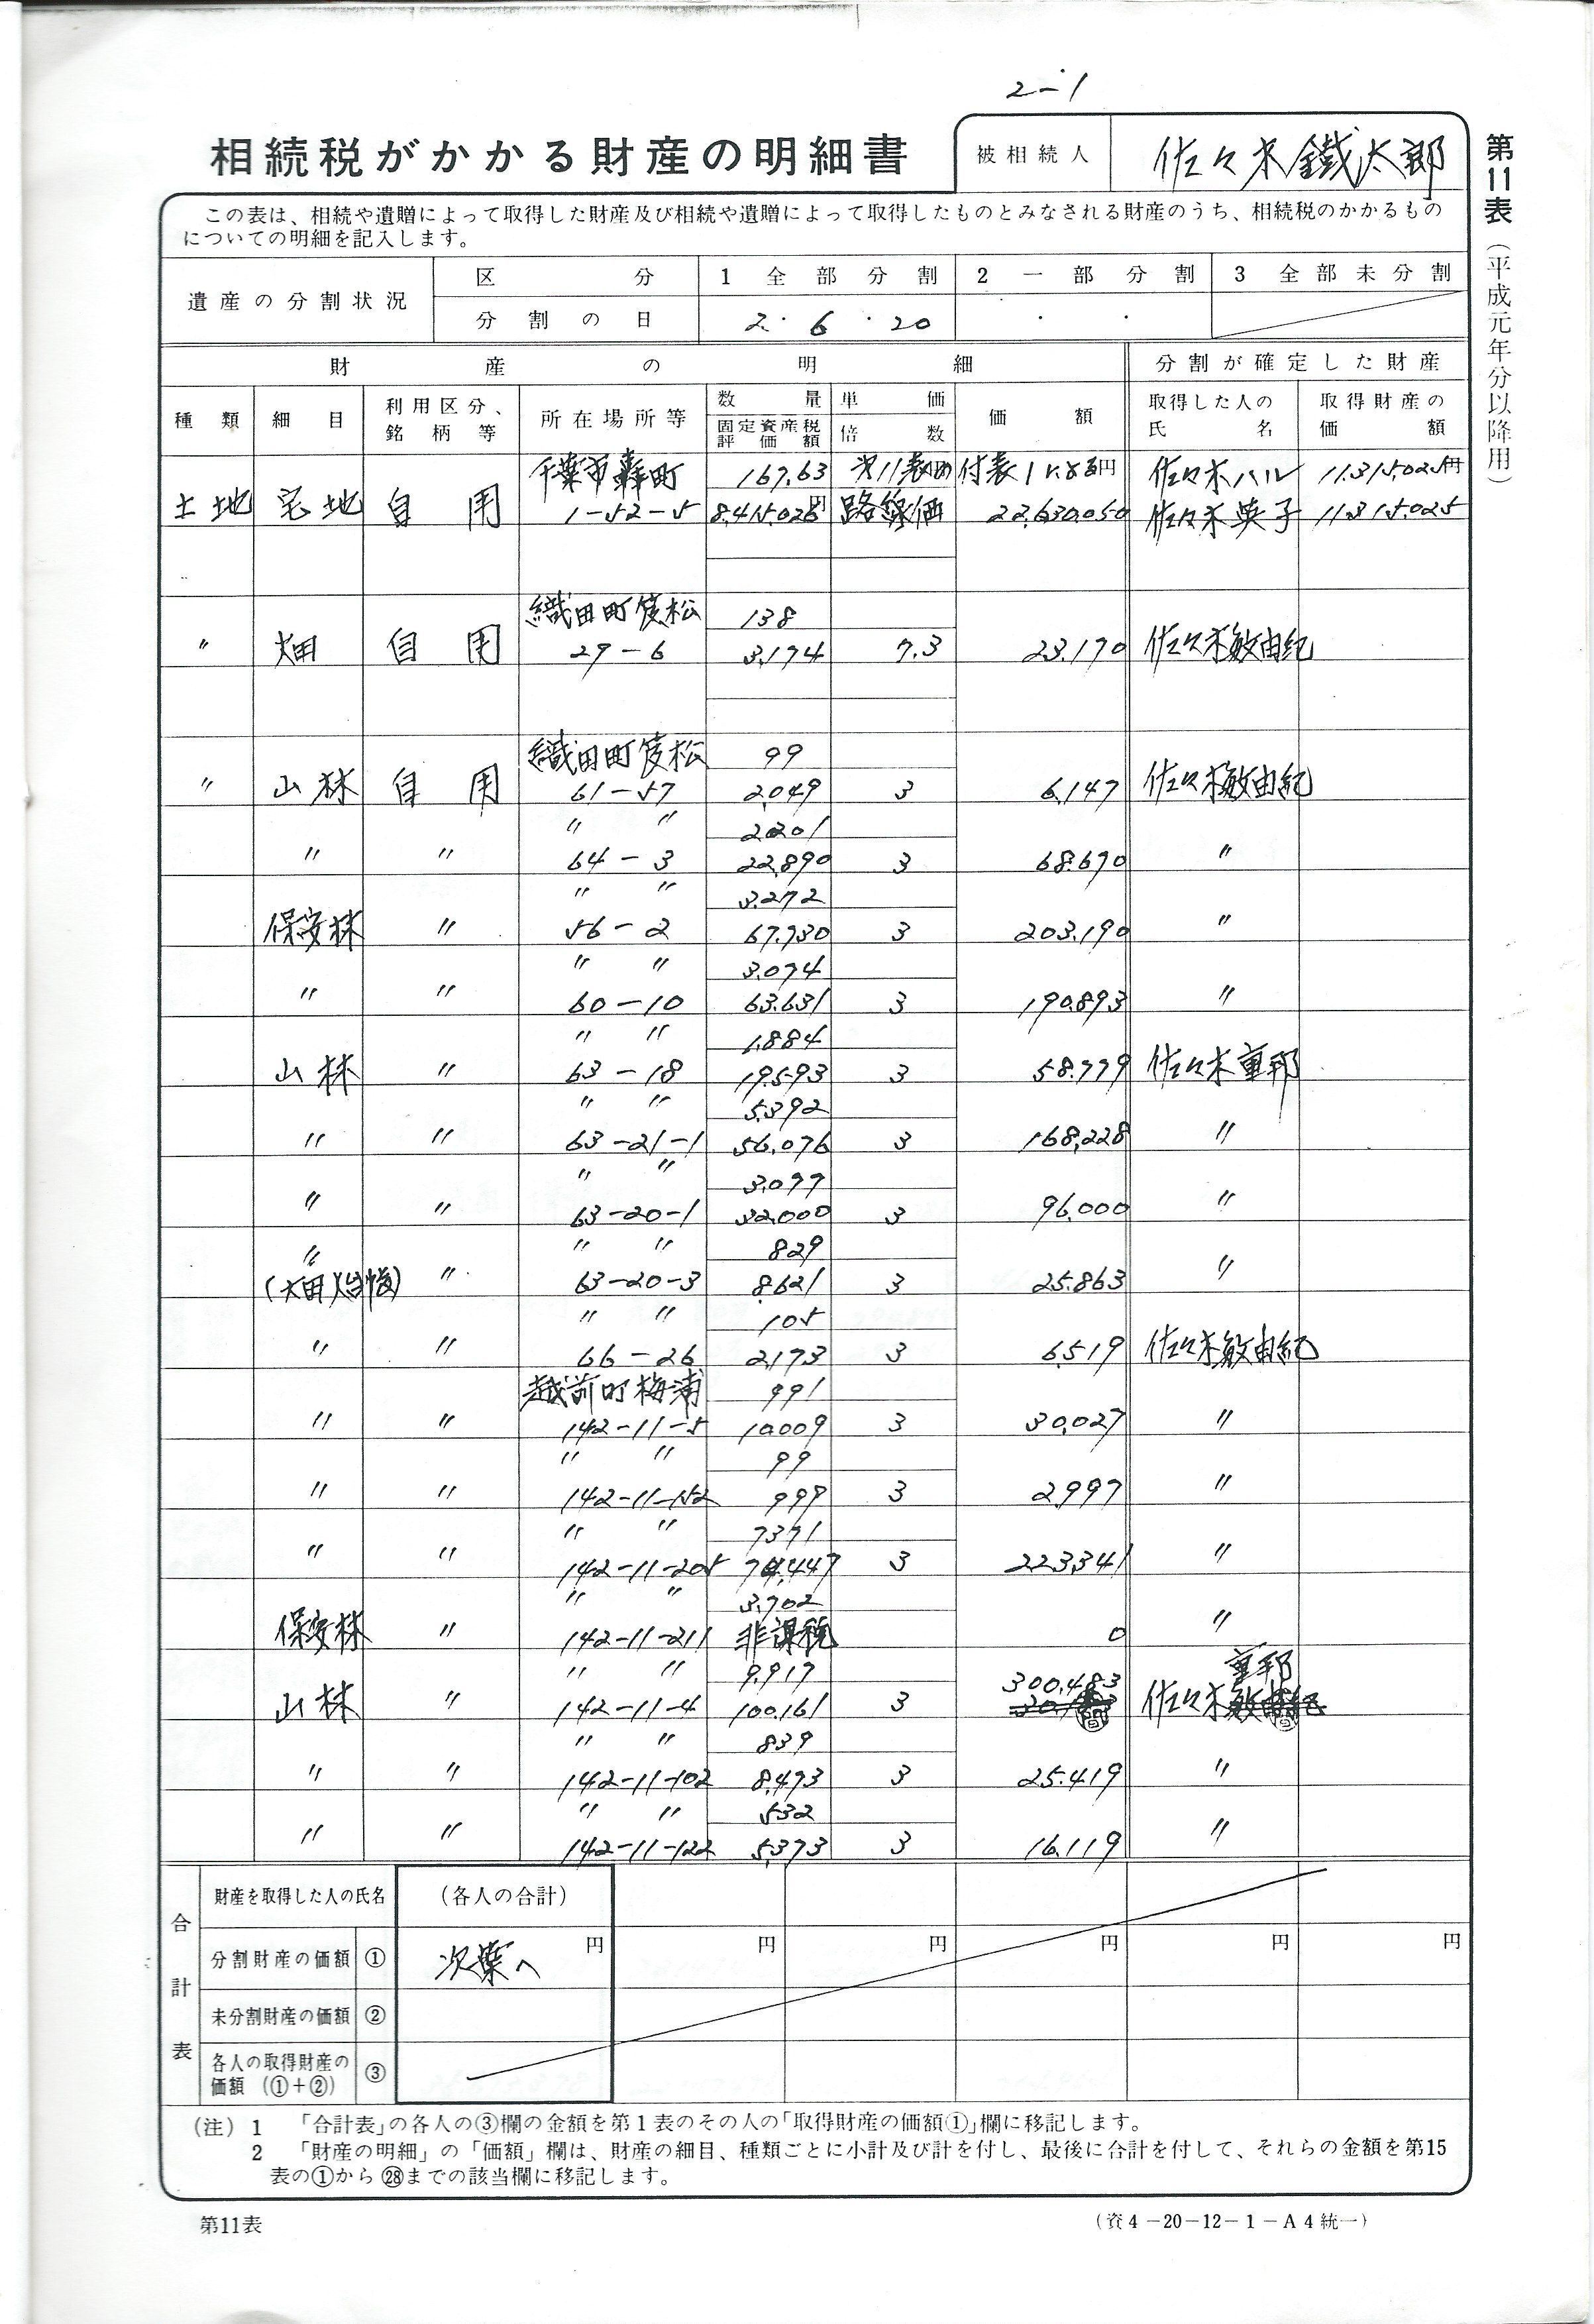 2-1
相続税がかかる財産の明細書
被相続人 佐々木鐵太郎
第11表(平成元年分以降用)
この表は、相続や遺贈によって取得した財産及び相続や遺贈によって取得したものとみなされる財産のうち、相続税のかかるもの
についての明細を記入します。
遺産の分割状況 区分 1 全部分割 2 一部分割 3 全部未分割
分割の日 2・6・20 ・ ・
財産の明細 分割が確定した財産
種類 細目 利用区分、銘柄等 所在場所等 数量 固定資産税評価額 単価 倍数 価額 取得した人の氏名 取得財産の価額
千葉市轟町 167.63 付表1による 円 佐々木ハル 11,315,025円
土地 宅地 自用 1-52-5 8,415,026円 路線価 22,630,050 佐々木英子 11,315,025
織田町笈松 138
〃 畑 自用 29-6 3,174 7.3 23,170 佐々木敏由紀
織田町笈松 99
〃 山林 自用 61-57 2,049 3 6,147 佐々木敏由紀
〃 〃 2,201
〃 〃 64-3 22,890 3 68,670 〃
〃 〃 3,272
保安林 〃 56-2 67,730 3 203,190 〃
〃 〃 3,074
〃 〃 60-10 63,631 3 190,893 〃
〃 〃 1,884
山林 〃 63-18 19,593 3 58,779 佐々木重邦
〃 〃 5,392
〃 〃 63-21-1 56,076 3 168,228 〃
〃 〃 3,077
〃 〃 63-20-1 32,000 3 96,000 〃
〃 〃 〃 829
(畑) 〃 63-20-3 8,621 3 25,863 〃
〃 〃 105
〃 〃 66-26 2,173 3 6,519 佐々木敏由紀
越前町梅浦 991
〃 〃 142-11-5 10,009 3 30,027 〃
〃 〃 99
〃 〃 142-11-152 999 3 2,997 〃
〃 〃 7371
〃 〃 142-11-205 74,447 3 223,341 〃
〃 〃 3,702
保安林 〃 142-11-211 非課税 0 〃
〃 〃 9,917 300,483 重邦
山林 〃 142-11-4 100,161 3 佐々木敏由紀
〃 〃 839
〃 〃 142-11-102 8,473 3 25,419 〃
〃 〃 532
〃 〃 142-11-122 5,373 3 16,119 〃
合計表
財産を取得した人の氏名 (各人の合計)
分割財産の価額 ① 次葉へ 円 円 円 円 円 円
未分割財産の価額 ②
各人の取得財産の価額 (①+②) ③
(注) 1 「合計表」の各人の③欄の金額を第1表のその人の「取得財産の価額①」欄に移記します。
2 「財産の明細」の「価額」欄は、財産の細目、種類ごとに小計及び計を付し、最後に合計を付して、それらの金額を第15
表の①から㉘までの該当欄に移記します。
第11表 (資4-20-12-1-A4統一)